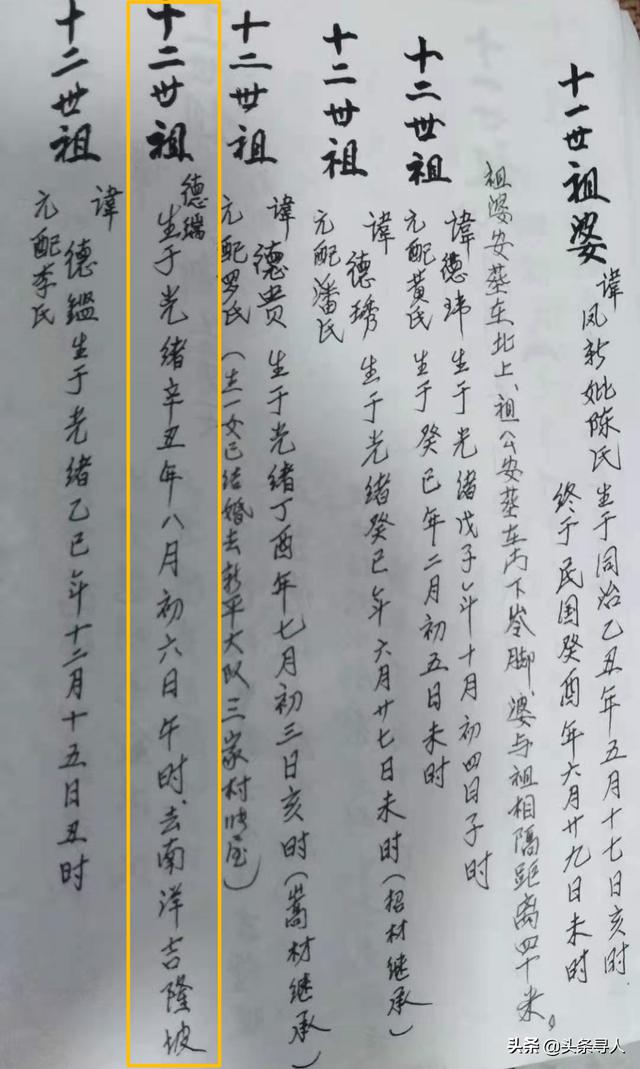 十一世祖婆 諱凤新妣陈氏 生于同治乙丑年五月十七日亥时
终于民国癸酉年六月廿九日未时
祖婆安葬东北上、祖公安葬东丙下岺脚、婆与祖相隔距离四十米。
十二世祖 諱德玮 生于光绪戊子年十月初四日子时
元配黄氏 生于癸巳年二月初五日未时
十二世祖 諱德琇 生于光绪癸巳年六月廿七日未时(招材继承)
元配潘氏
十二世祖 諱德贵 生于光绪丁酉年七月初三日亥时(蒿材继承)
元配罗氏(生一女已结婚去新平大队三家村)
十二世祖 德瑞
生于光绪辛丑年八月初六日午时、去南洋吉隆坡
十二世祖 諱德鑑生于光绪乙巳年十二月十五日丑时
元配李氏
头条 @头条寻人